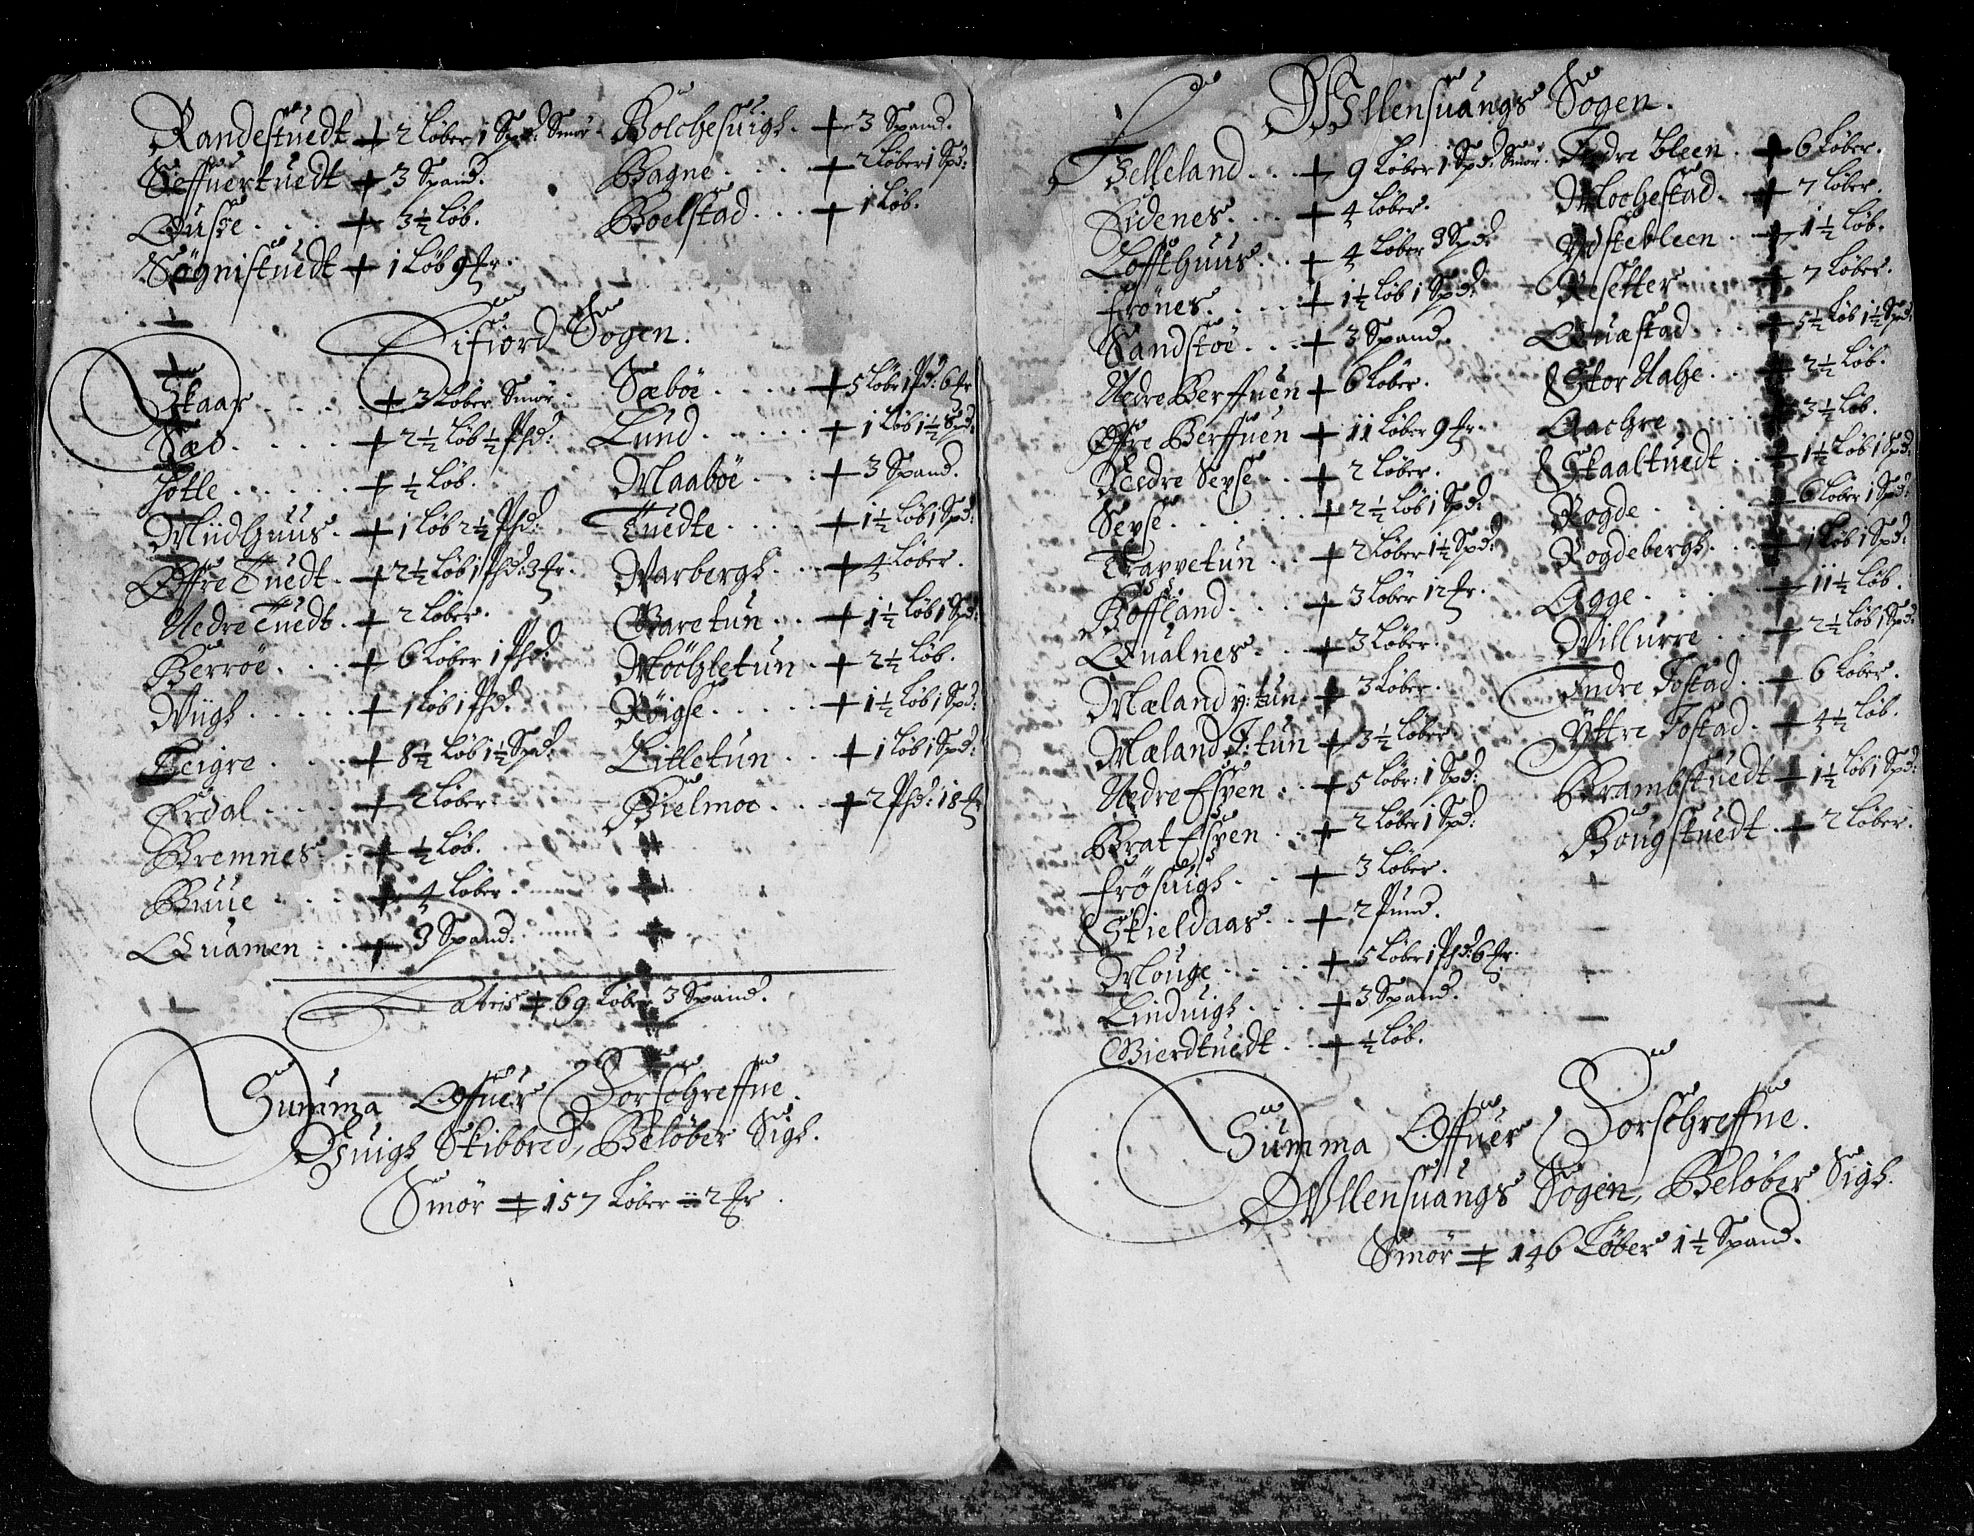 Randestuedt + 2 Løber 1 Spd: Smør
Seffuertuedt + 3 Spand.
Qusse . . . + 3½ Løb.
Søgnistuedt + 1 Løb 9 fr.
Bolchesuigh. + 3 Spand.
Bagne . . . + 2 Løber 1 Spd:
Boelstad . . + 1 Løb.
Eifiord Sogen.
Skaar . . . + 3 Løber Smør.
Sæd . . . + 2½ Løb ½ Phd:
Hotle . . . + ½ Løb.
Miidhuus . + 1 Løb 2½ Phd:
Øffre Tuedt . + 2½ Løb 1 Phd: 3 fr.
Nedre Tuedt . + 2 Løber.
Berrøe . . . + 6 Løber 1 Phd:
Wiigh . . . + 1 Løb 1 Phd.
Teigre . . . + 8½ Løb 1½ Spd:
Erdal . . . + 2 Løber
Bremnes . . + ½ Løb.
Buue . . . + 4 Løber.
Quamen . . + 3 Spand:
Sæbøe . . . + 5 Løb 1 Pd: 6 fr
Lund . . . + 1 Løb 1½ Spd:
Maabøe . . + 3 Spand.
Tuedte . . . + 1½ Løb 1 Spd:
Warbergh . . + 4 Løber.
Garetun . . + 1½ Løb 1 Spd:
Møchletun . + 2½ Løb.
Røigse . . . + 1½ Løb 1 Spd:
Litletun . . + 1 Løb 1 Spd:
Bielmoe . . + 2 Phd: 18 fr
Lateris + 69 Løber 3 Spand.
Summa Offuer Forschreffne
Guigh Skibbred, Beløber Sigh.
Smør + 157 Løber ii 2 fr.
Wllensuangs Sogen.
Helleland . . + 9 Løber 1 Spd: Smør.
Eidenes . . + 4 Løber.
Loffthuus . . + 4 Løber 3 Spd:
Frønes . . . + 1½ Løb 1 Spd:
Sandstøe . . + 3 Spand.
Nedre Berffuen + 6 Løber.
Øffre Berffuen + 11 Løber 9 fr.
Nedre Sexse . + 2 Løber.
Sexse . . . + 2½ Løb 1 Spd:
Trappetun . . + 2 Løber 1½ Spd:
Hoffland . . + 3 Løber 12 fr.
Qualnes . . + 3 Løber.
Mæland y: tun + 3 Løber.
Mæland J: tun + 3½ Løber
Nedre Espen . + 5 Løbr: 1 Spd:
Brat Espen . . + 2 Løber 1 Spd:
Frøsuigh . . + 3 Løber.
Skieldaas . . + 2 Pund.
Mouge . . . + 5 Løber 1 Phd: 6 fr.
Linduigh . . + 3 Spand.
Gierdtuedt . . + ½ Løb.
Indre bleen . + 6 Løber.
Mochestad . + 7 Løber.
Ystebleen . . + 1½ Løb.
Resetter . . + 7 Løber.
Quæstad . . + 5½ Løb 1½ Spd:
Stor Nahe . . + 2½ Løb.
Aachre . . . + 3½ Løb.
Skaaltuedt . . + 1½ Løb 1 Spd:
Rogde . . . + 6 Løber 1 Spd:
Rogdebergh . + 1 Løb 1 Spd:
Agge . . . + 11½ Løb.
Willurre . . + 2½ Løb 1 Spd:
Indre Jostad . + 6 Løber.
Yttre Jostad . + 4½ Løb.
Brambstuedt + 1½ Løb 1 Spd:
Bougstuedt . + 2 Løber.
Summa Offuer Forschreffne.
Wllensuangs Sogen, Beløber Sigh.
Smør + 146 Løber 1½ Spand.